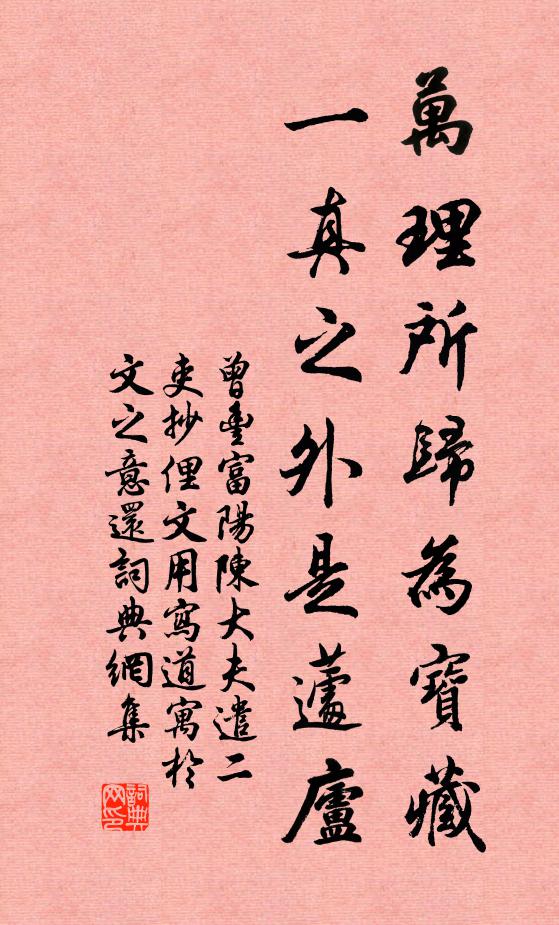 萬理所歸為寶藏
一真之外是蘧廬
曾豐富陽陳大夫遣二
吏抄俚文用寫道寓於
文之意還詞典網集
詞典
网印